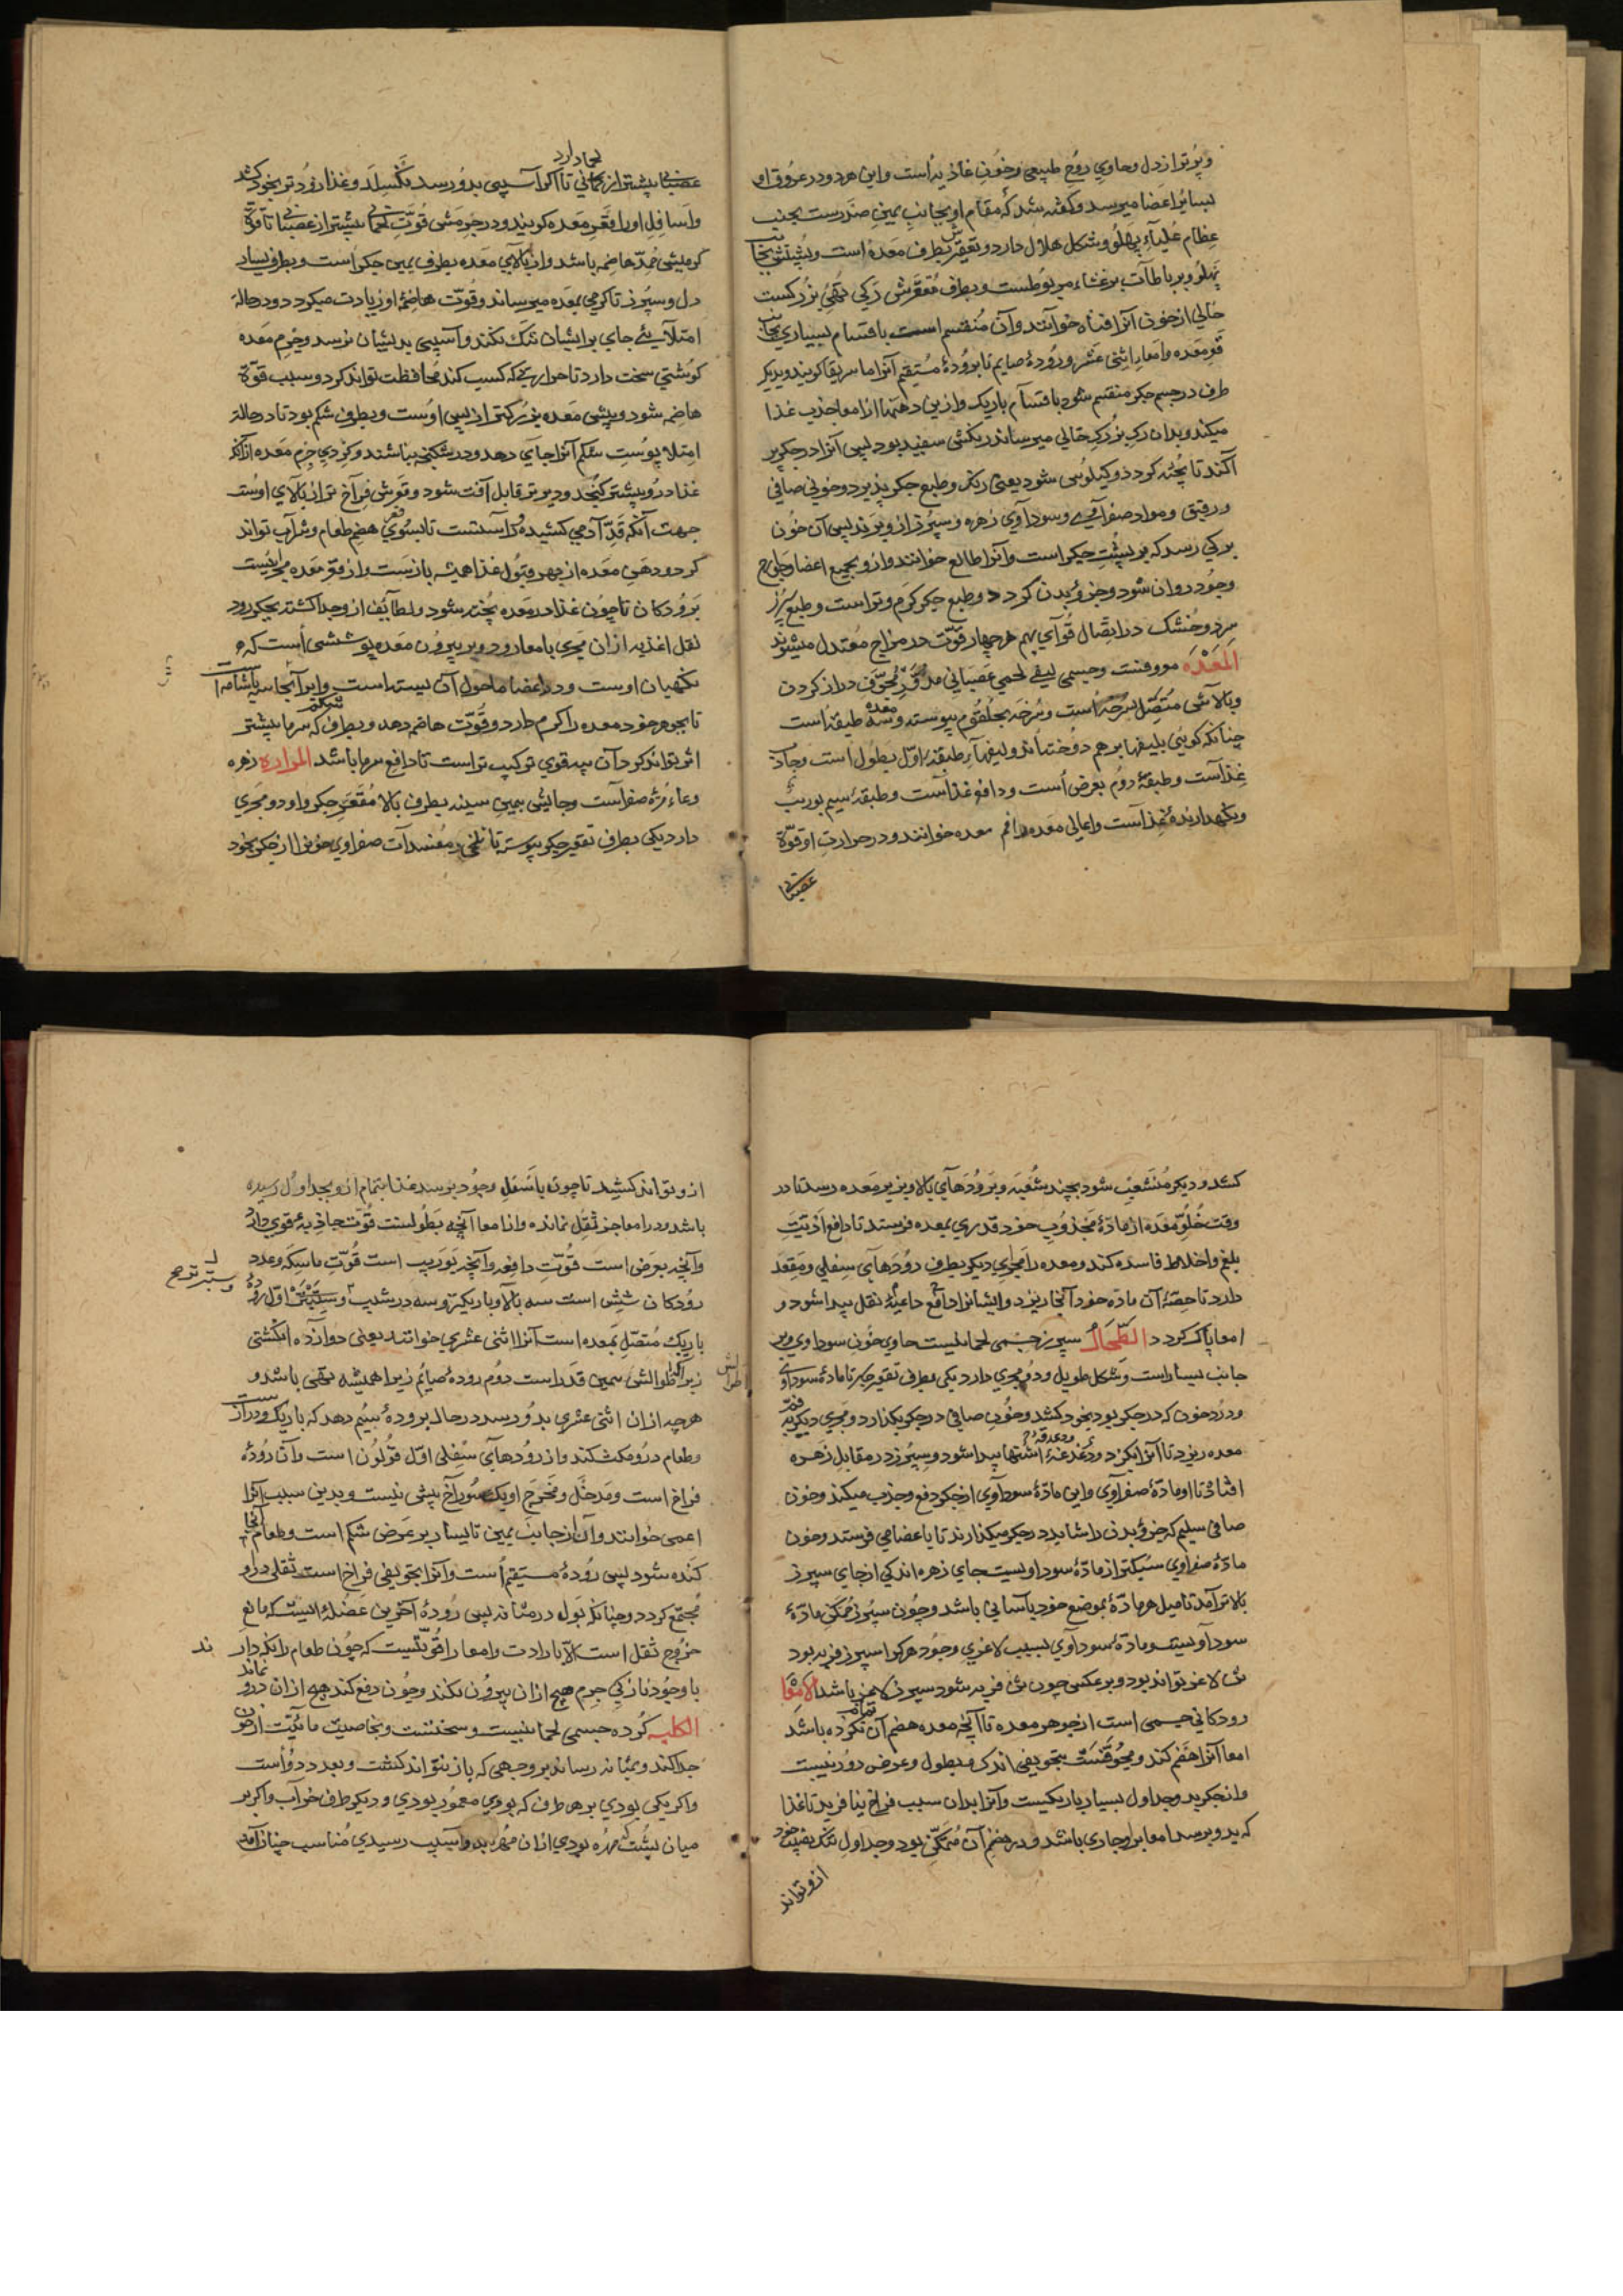 و پُرتر از دل و حاوی رُوح طبیعی و خُون غاذیه است و این هر دو در عروق او
بسایر اعضا میرسد و گفته شد که مقام او بجانب یمین صدرست بجنب
عظام علیاء پهلو و شکل هلال دارد و تقعیرش بطرف معده است و پشتش بجانب
پهلو و برباطات بر غشاء مربوطست و بطرف مقعرش رگی تهی بزرگست
خالی از خون آنرا قناة خوانند و آن منقسم است باقسام بسیاری بجانب
قعر معده و امعاء اثنی عشر و رودهٔ صایم تا برودهٔ مستقیم آنرا ماسریقا گویند و بدیگر
طرف در جسم جگر منقسم شود باقسام باریک و ازین دهنها از امعا جذب غذا
میکند و بدان رگ بزرگ خالی میرساند رنگش سفید بود پس آنرا در جگر پر
آکند تا پخته گردد و کیلوس شود یعنی رنگ و طبع جگر پذیرد و خونی صافی
و رقیق و مواد صفرآوی و سودآوی زهره و سپرز از و برند پس آن خون
برگی رسد که بر پشت جگر است و آنرا طالع خوانند و از و بجمیع اعضا و جوارح
وجود روان شود و جزو بدن گردد و طبع جگر گرم و تر است و طبع سپرز
سرد و خشک در اتصال قوآی بهم هر چهار قوّت در مزاج معتدل میشوند
المَعْدَه موونت و جسمی لیفی لحمی عصبانی مدوّر مجوّف دراز گردن
و بالاش متصل بسرخه است و سرخه بحلقوم پیوسته و معده سه طبقه است
چنانکه گویی بلیفها بر هم دوخته اند و لیفهآء طبقهٔ اوّل بطول است و جاذب
غذآست و طبقهٔ دوم بعرض است و دافع غذآست و طبقهٔ سیم بوریب
و نگهدارندهٔ غذآست و اعالی معده را فم معده خوانند و در حرارت او قوّة
عصبانی
لحما دارد
عصبانی بیشتر از لحمانی تا اگر آسیبی بدو رسد نگسلد و غذا زودتر بخود کشد
و اسافل اورا قعر معده گویند و در جرمش قوّت لحمانی بیشتر از عصبانی تا قوّة
گرمیش ممدّ هاضمه باشد و از بالای معده بطرف یمین جگر است و بطرف یسار
دل و سپرز تا گرمی بمعده میرساند و قوّت هاضمهٔ او زیادت میگردد و در حالة
امتلآیئ جای بر ایشان تنگ نکند و آسیبی بدیشان نرسد و جرم معده
گوشتی سخت دارد تا حرارتی که کسب کند محافظت تواند کرد و سبب قوّة
هاضمه شود و پیش معده بزرگتر از پس اوست و بطرف شکم بود تا در حالة
امتلا پوست شکم آنرا جای دهد و در شکنجه نباشند و گردی جرم معده از آنکه
غذا درو بیشتر گنجد و دیرتر قابل آفت شود و قعرش فراخ تر از بالای اوست
جهت آنکه قد آدمی کشیده و راستست تا بسوی قعر هضم طعام و شراب تواند
کرد و دهن معده از بهر قبول غذا همیشه بازست و از قعر معده مجرائیست
برودگان تا چون غذا در معده پخته شود و لطایف از و جدا گشته بجگر رود
ثقل اغذیه از آن مجری بامعا رود و بر بیرون معده پوششی است که
نگهبان اوست و در اعضا ماحول آن بسته است و ابر آنجا سپاشامه است
تا بجوهر خود معده را گرم دارد و قوّت هاضمه دهد و بطرف شکم که سرما بیشتر
اثر تواند کرد آن پیه قوی ترکیب تر است تا دافع سرما باشد المراره زهره
وعاء مره صفرآست و جایش بیمین سینه بطرف بالا مقعر جگر و او دو مجری
دارد یکی بطرف تقعیر جگر پیوسته تا تلخی و مفسدات صفراوی خونرا از جگر بخود
کشد و دیگر منشعب شود بچند شعبه و برودهآی بالا و بزیر معده رسد تا در
وقت خلوّ معده از مادّهٔ مجذوب خود قدری بمعده فرستد تا دافع اذیت
بلغم و اخلاط فاسده کند و معده را مجرای دیگر بطرف رودهآی سفلی و مقعد
دارد تا حصّهٔ آن مادّه خود آنجا ریزد و ایشانرا دافع داعیهٔ ثقل پیدا شود و
امعا پاک گردد الطّحال سپرز جسمی لحمانیست حاوی خون سوداوی و بر
جانب یسار است و شکل طویل و دو مجری دارد یکی بطرف تقعیر جگر تا مادّهٔ سوداوی
و درد خون که در جگر بود بخود کشد و خون صافی در جگر بگذارد و مجری دیگر به فم
معده ریزد تا آنرا بگزد و دغدغهٔ اشتها پیدا شود و سپرز در مقابل زهره
افتاد تا او مادّهٔ صفرآوی و این مادّهٔ سودآوی از جگر دفع و جذب میکند و خون
صافی سلیم که جزو بدن را شاید در جگر میگذارند تا باعضا می فرستد و خون
مادّهٔ صفراوی سبکتر از مادّهٔ سوداویست جای زهره اندکی از جای سپرز
بالاتر آمد تا میل هر مادّهٔ بموضع خود بآسانی باشد و چون سپرز ممکن مادّهٔ
سودآویست و مادّهٔ سودآوی بسبب لاغری وجود هر کرا سپرز فربه بود
تن لاغر تواند بود و بر عکس چون تن فربه شود سپرز لاغر باشد الامعا
رودگانی جسمی است از جوهر معده تا آنچه معده هضم آن تمام نکرده باشد
امعا آنرا هضم کند و مجوّفست بتجویفی اندک و بطول و عرض دور نیست
و از جگر بدو جداول بسیار باریکیست و آنرا بدان سبب فراخ نیافرید تا غذا
که بدو برسد امعا برو جاری باشد و بر هضم آن متمکن بود و جداول تنک نصیب خود
از و تواند
از و تواند کشید تا چون باسفل وجود برسد غذا بتمام از و بجداول رسیده
باشد و در امعا جز ثقل نمانده و از امعا آنچه بطولست قوّت جاذبهٔ قوی دارد
و آنچه بعرض است قوّت دافعه و آنچه بوریب است قوّت ماسکه و عدد
رودگان شش است سه بالا و باریکتر و سه در شیب و ستبرتر اوّل رودهٔ
باریک متصل بمعده است آنرا اثنی عشری خوانند یعنی دوازده انگشتی
زیرا که طوالش همین قدر است دوم رودهٔ صایم زیرا همیشه تهی باشد و
هر چه از آن اثنی عشری بدو رسد در حال برودهٔ سیم دهد که باریک و دراز است
و طعام درو مکث کند و از رودهای سفلی اوّل قولون است و آن رودهٔ
فراخ است و مدخل و مخرج او یک سوراخ بیش نیست و بدین سبب آنرا
اعمی خوانند و آن از جانب یمین تا یسار بر عرض شکم است و طعام آنجا
گنده شود پس رودهٔ مستقیم است و آنرا تجویفی فراخ است ثقلی درو
مجتمع گردد و چنانکه بول در مثانه پس رودهٔ آخرین عضلهٔ ایست که مانع
خروج ثقل است الا بارادت و امعا را قوّتیست که چون طعام را نگه دارند
با وجود نازکی جرم هیچ از آن بیرون نکند و چون دفع کند هیچ از آن درو نماند
الکلیه گرده جسمی لحمانیست و سختست و بخاصیت مائیت از خون
جدا کند و بمثانه رساند بر وجهی که باز نتواند گشت و بعدد دو است
و اگر یکی بودی بر هر طرف که بودی معمور بودی و دیگر طرف خراب و اگر بر
میان پشت که مهره بودی از آن مهره بدو آسیب رسیدی مناسب چنان آمد